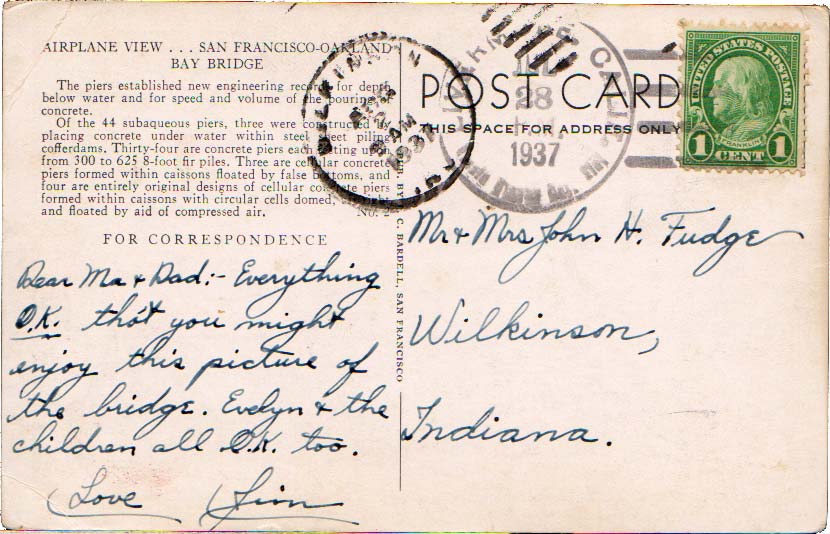 AIRPLANE VIEW . . . SAN FRANCISCO-OAKLAND
BAY BRIDGE
The piers established new engineering records for depth
below water and for speed and volume of the pouring of
concrete.
Of the 44 subaqueous piers, three were constructed by
placing concrete under water within steel sheet piling
cofferdams. Thirty-four are concrete piers each resting upon
from 300 to 625 8-foot fir piles. Three are cellular concrete
piers formed within caissons floated by false bottoms, and
four are entirely original designs of cellular concrete piers
formed within caissons with circular cells domed,
and floated by aid of compressed air.
NO.
FOR CORRESPONDENCE
Dear Ma & Dad:- Everything
O.K. tho't you might
enjoy this picture of
the bridge. Evelyn & the
children all O.K. too.
Love Jim
BY C. BARDELL, SAN FRANCISCO
WILKINSON
AM
1937
CALIF.
28
1937
POST CARD
THIS SPACE FOR ADDRESS ONLY
UNITED STATES POSTAGE
FRANKLIN
1 CENT 1
Mr & Mrs John H. Fudge
Wilkinson,
Indiana.